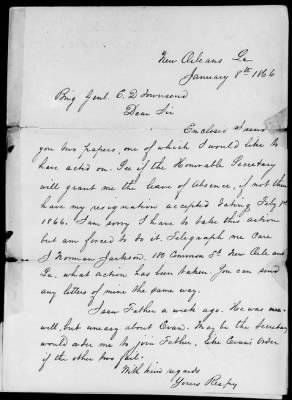 New Orleans La
January 8th 1866
Brig Genl. E. D. Townsend
Dear Sir
Enclosed I send
you two papers, one of which I would like to
have acted on. See if the Honorable Secretary
will grant me the leave of Absence, if not then
have my resignation accepted dating July 1st
1866. I am sorry I have to take this action
but am forced to do it. Telegraph me Care
J Norman Jackson, 180 Common St. New Orleans
La, what action has been taken. You can send
any letters of mine the same way.
I saw Father a week ago. He was
well, but uneasy about Evan. May be the Secretary
would order me to join Father, like Evans order
if the other two fail.
With kind regards
Yours Respy